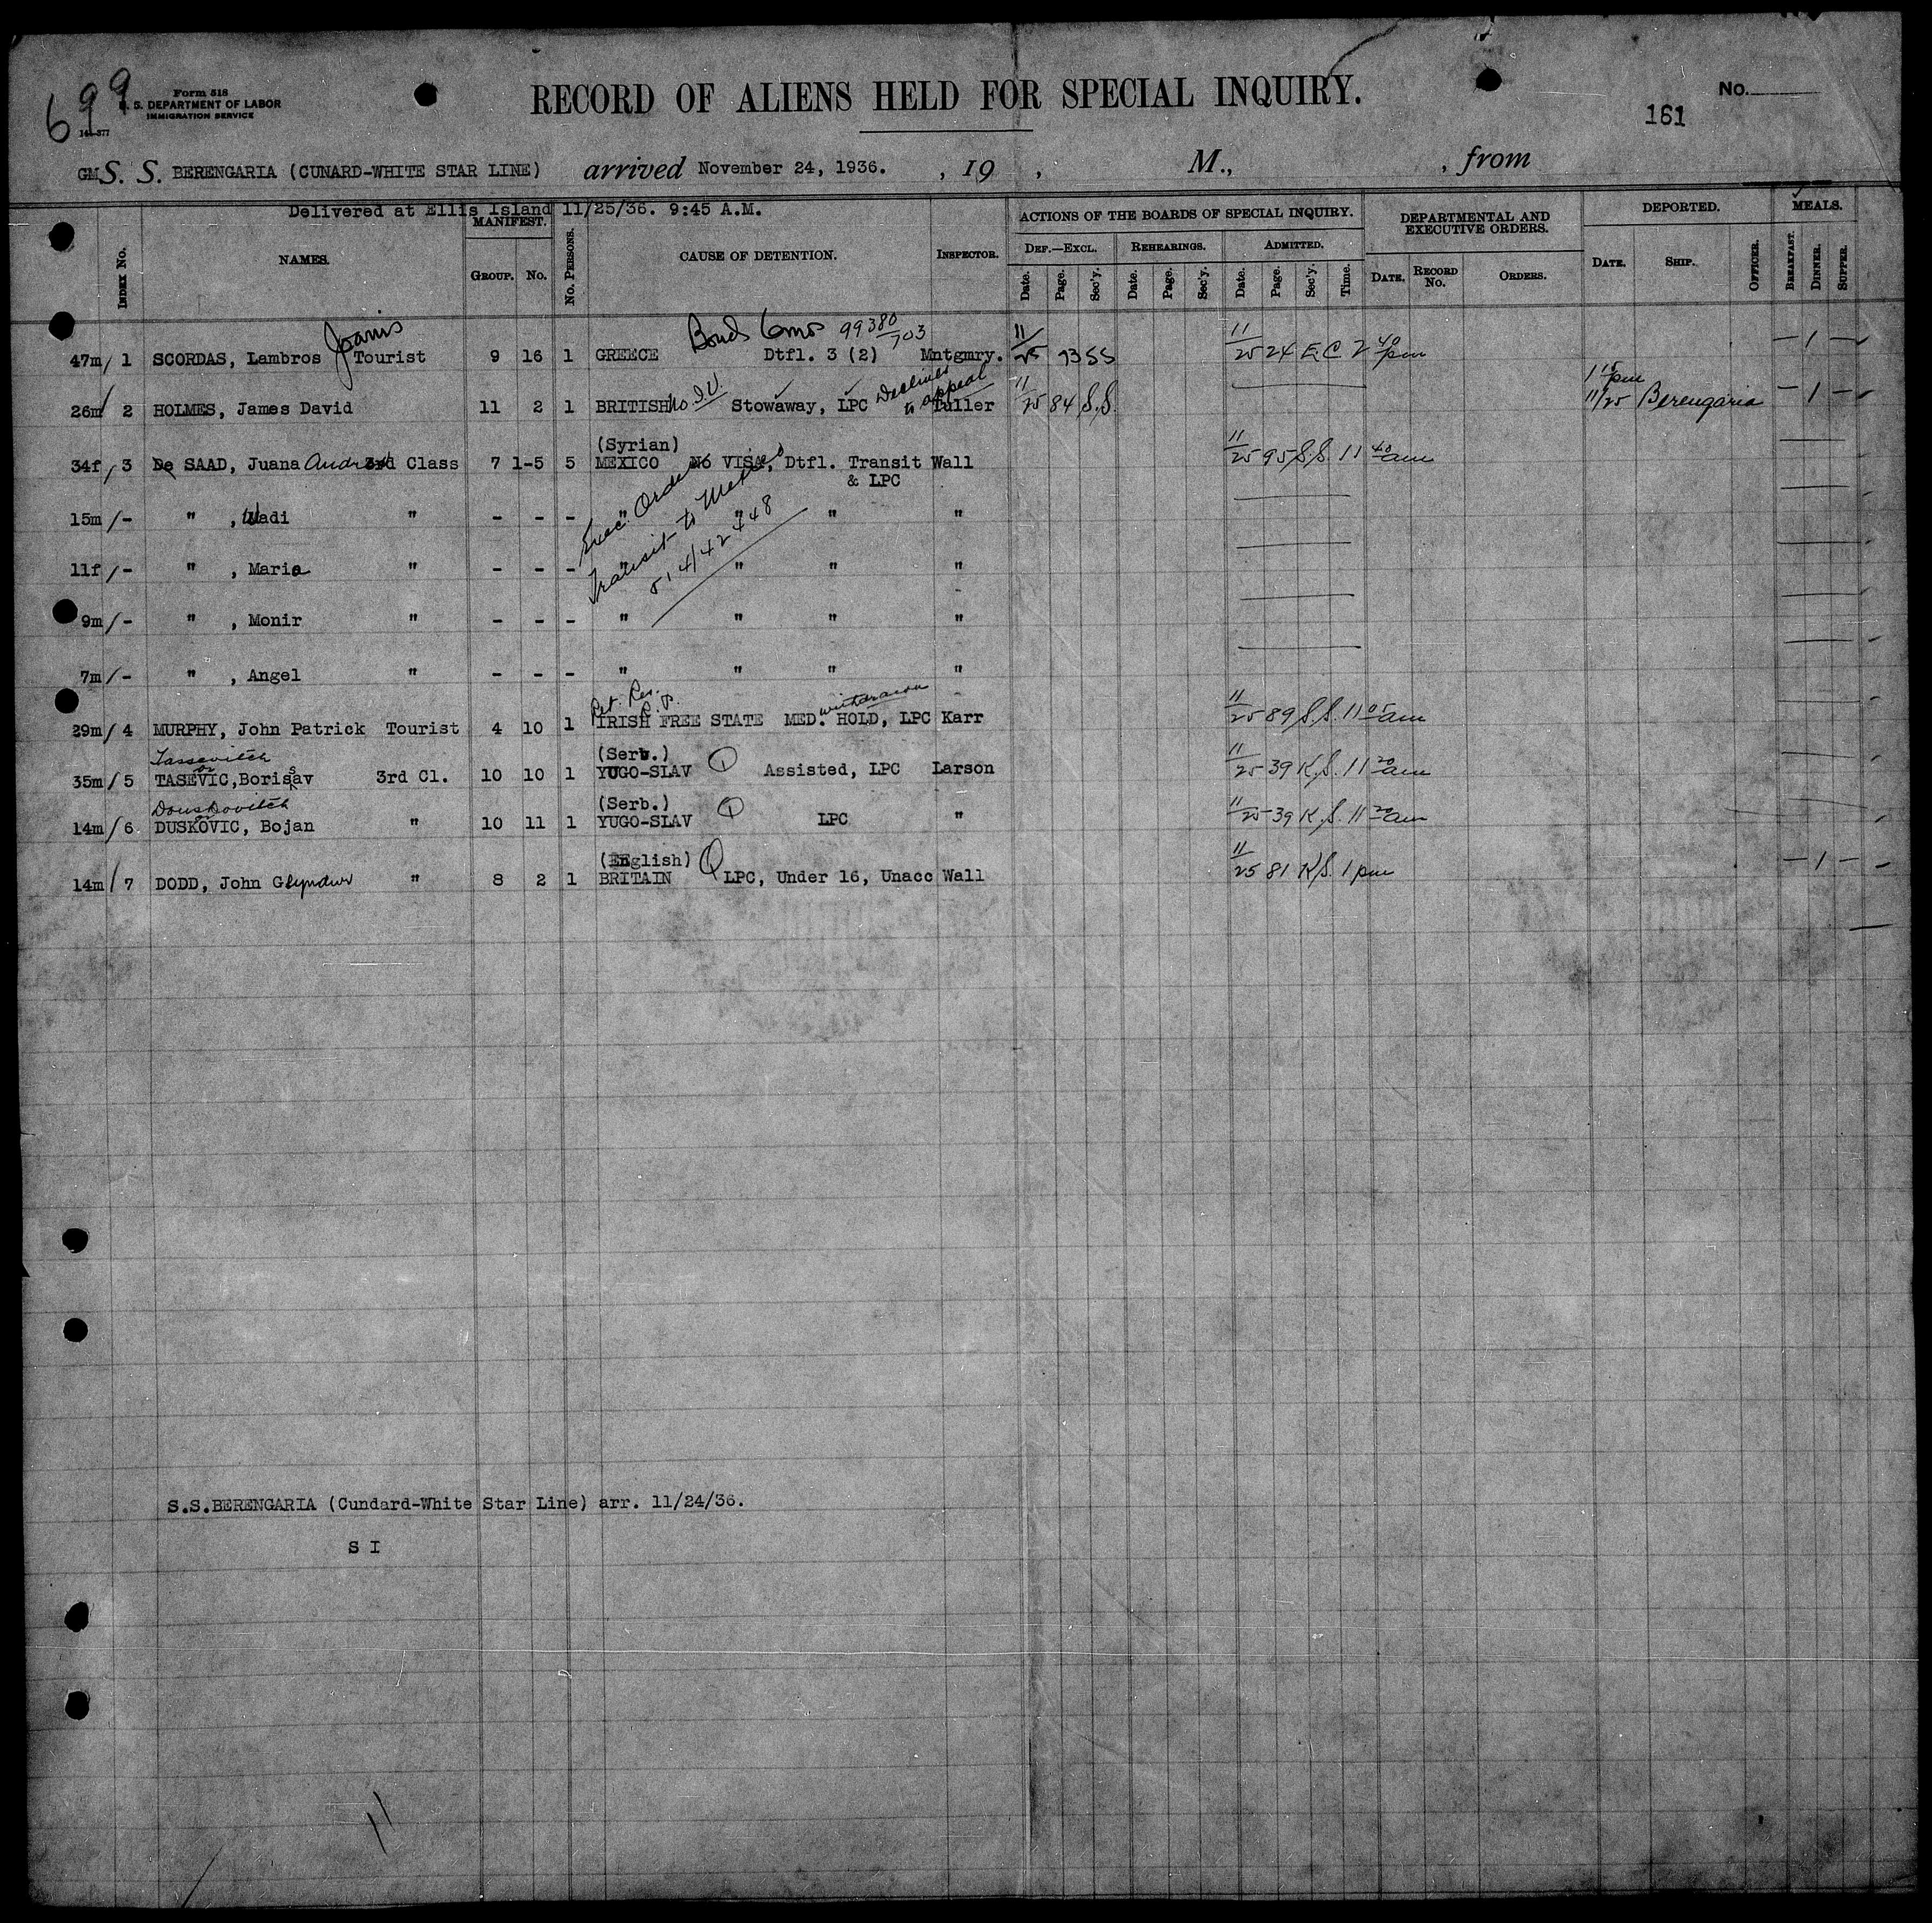 699
Form 518
U. S. DEPARTMENT OF LABOR
IMMIGRATION SERVICE
14-377
RECORD OF ALIENS HELD FOR SPECIAL INQUIRY.
No.
161
GM S. S. BERENGARIA (CUNARD-WHITE STAR LINE) arrived November 24, 1936. , 19 , M., , from
Delivered at Ellis Island 11/25/36. 9:45 A.M.
INDEX No. NAMES. MANIFEST. GROUP. No. No. PERSONS. CAUSE OF DETENTION. INSPECTOR. ACTIONS OF THE BOARDS OF SPECIAL INQUIRY. DEPARTMENTAL AND EXECUTIVE ORDERS. DEPORTED. MEALS.
DEF.—EXCL. REHEARINGS. ADMITTED.
Date. Page. Sec'y. Date. Page. Sec'y. Date. Page. Sec'y. Time. DATE. RECORD No. ORDERS. DATE. SHIP. OFFICER. BREAKFAST. DINNER. SUPPER.
Joanis Bond 6 mos 99380/703
47m/ 1 SCORDAS, Lambros Tourist 9 16 1 GREECE Dtfl. 3 (2) Mntgmry. 11/25 73 SS 11/25 24 E.C. 2 40 pm — 1 —
26m/ 2 HOLMES, James David 11 2 1 BRITISH No I.V. Stowaway, LPC Declines to appeal Tuller 11/25 84 S.S. 1 15 pm 11/25 Berengaria — 1 —
(Syrian)
34f/ 3 De SAAD, Juana 3rd Class 7 1-5 5 MEXICO No VISA, Dtfl. Transit Wall 11/25 95 S.S. 11 40 am
& LPC
Exec. Order
Transit to Mexico
15m/- " , Wadi " - - - " " " "
11f/- " , Maria " - - - " " " "
9m/- " , Monir " - - - " " " "
7m/- " , Angel " - - - " " " "
Ret. Res. withdrawn
29m/ 4 MURPHY, John Patrick Tourist 4 10 1 IRISH FREE STATE MED. HOLD, LPC Karr 11/25 89 S.S. 11 05 am
Tassevitch or (Serb.)
35m/ 5 TASEVIC, Borisav 3rd Cl. 10 10 1 YUGO-SLAV Assisted, LPC Larson 11/25 39 K.S. 11 20 am
Douskovitch or (Serb.)
14m/ 6 DUSKOVIC, Bojan " 10 11 1 YUGO-SLAV LPC " 11/25 39 K.S. 11 20 am
(English)
14m/ 7 DODD, John Glyndwr " 8 2 1 BRITAIN LPC, Under 16, Unacc Wall 11/25 81 K.S. 1 pm — 1 —
S.S.BERENGARIA (Cundard-White Star Line) arr. 11/24/36.
S I
11